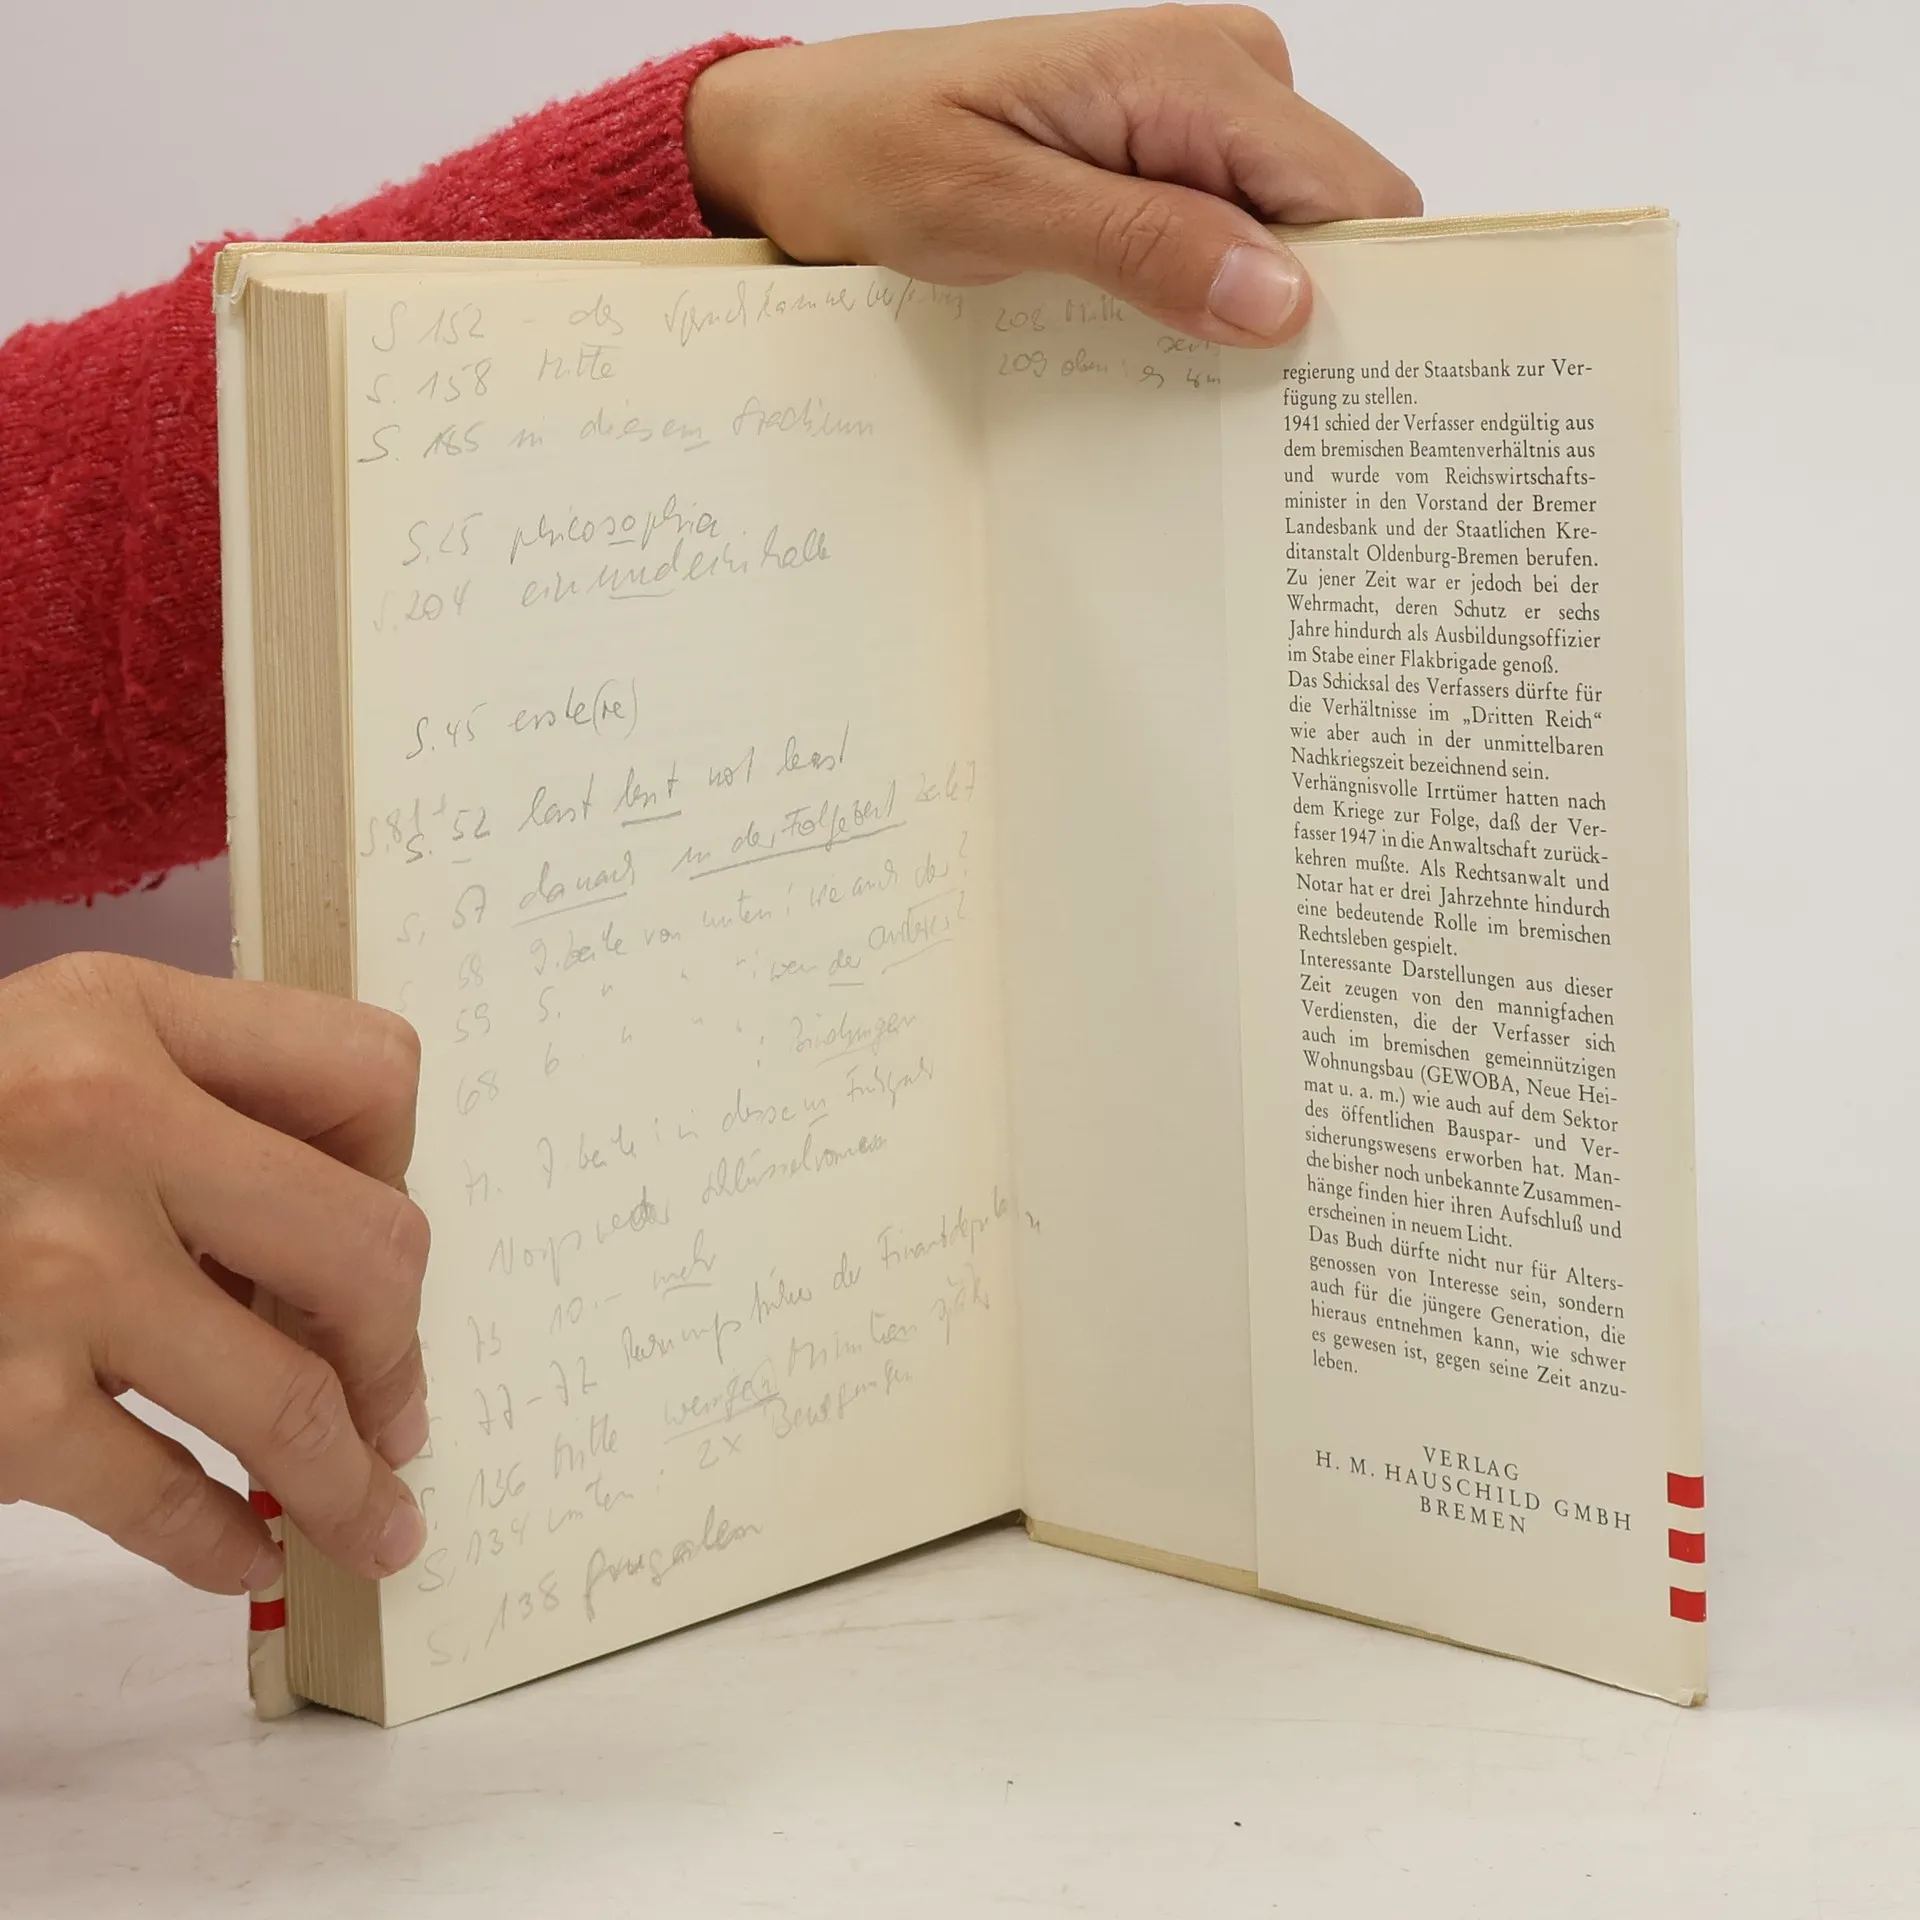 S 152 - des
S. 158 Mitte
S. 185 in diesem Stadium
S. 25 philosophia
S. 204 einundeinhalb
S. 45 erste(re)
S. 81 +
S. 52 last but not least
S. 57 danach in der Folgezeit Zeile 7
58 9. Zeile von unten: wie auch der?
59 5. " " ": wen der anderes?
68 6. " " " :
71. 7. Zeile: in dessem
Schlüsselroman
73 10.- mehr
77-72 der
S. 136 Mitte wenige(n) Minuten
S. 134 unten: 2x Bewegungen
S. 138
208 Mitte
209 oben: es
regierung und der Staatsbank zur Ver-
fügung zu stellen.
1941 schied der Verfasser endgültig aus
dem bremischen Beamtenverhältnis aus
und wurde vom Reichswirtschafts-
minister in den Vorstand der Bremer
Landesbank und der Staatlichen Kre-
ditanstalt Oldenburg-Bremen berufen.
Zu jener Zeit war er jedoch bei der
Wehrmacht, deren Schutz er sechs
Jahre hindurch als Ausbildungsoffizier
im Stabe einer Flakbrigade genoß.
Das Schicksal des Verfassers dürfte für
die Verhältnisse im „Dritten Reich“
wie aber auch in der unmittelbaren
Nachkriegszeit bezeichnend sein.
Verhängnisvolle Irrtümer hatten nach
dem Kriege zur Folge, daß der Ver-
fasser 1947 in die Anwaltschaft zurück-
kehren mußte. Als Rechtsanwalt und
Notar hat er drei Jahrzehnte hindurch
eine bedeutende Rolle im bremischen
Rechtsleben gespielt.
Interessante Darstellungen aus dieser
Zeit zeugen von den mannigfachen
Verdiensten, die der Verfasser sich
auch im bremischen gemeinnützigen
Wohnungsbau (GEWOBA, Neue Hei-
mat u. a. m.) wie auch auf dem Sektor
des öffentlichen Bauspar- und Ver-
sicherungswesens erworben hat. Man-
che bisher noch unbekannte Zusammen-
hänge finden hier ihren Aufschluß und
erscheinen in neuem Licht.
Das Buch dürfte nicht nur für Alters-
genossen von Interesse sein, sondern
auch für die jüngere Generation, die
hieraus entnehmen kann, wie schwer
es gewesen ist, gegen seine Zeit anzu-
leben.
VERLAG
H. M. HAUSCHILD GMBH
BREMEN